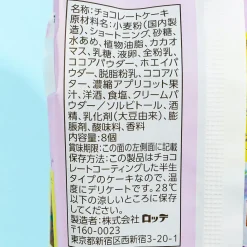 名称:チョコレートケーキ
原材料名:小麦粉(国内製
造)、ショートニング、砂糖、
水あめ、植物油脂、カカオ
マス、乳糖、液卵、全粉乳、
ココアバター、ホエイパウ
ダー、脱脂粉乳、ココアパウ
ダー、濃縮アプリコット果
汁、洋酒、食塩、クリームパウ
ダー/ソルビトール、酒
精、乳化剤(大豆由来)、膨
脹剤、酸味料、香料
内容量:8個
賞味期限:この面の左側面に記載
保存方法:この製品はチョコ
レートコーティングした半生
タイプのケーキなので、温
度にデリケートです。28℃
以下の涼しいところで保存
してください。
製造者:株式会社 ロッテ
〒160-0023
東京都新宿区西新宿3-20-1